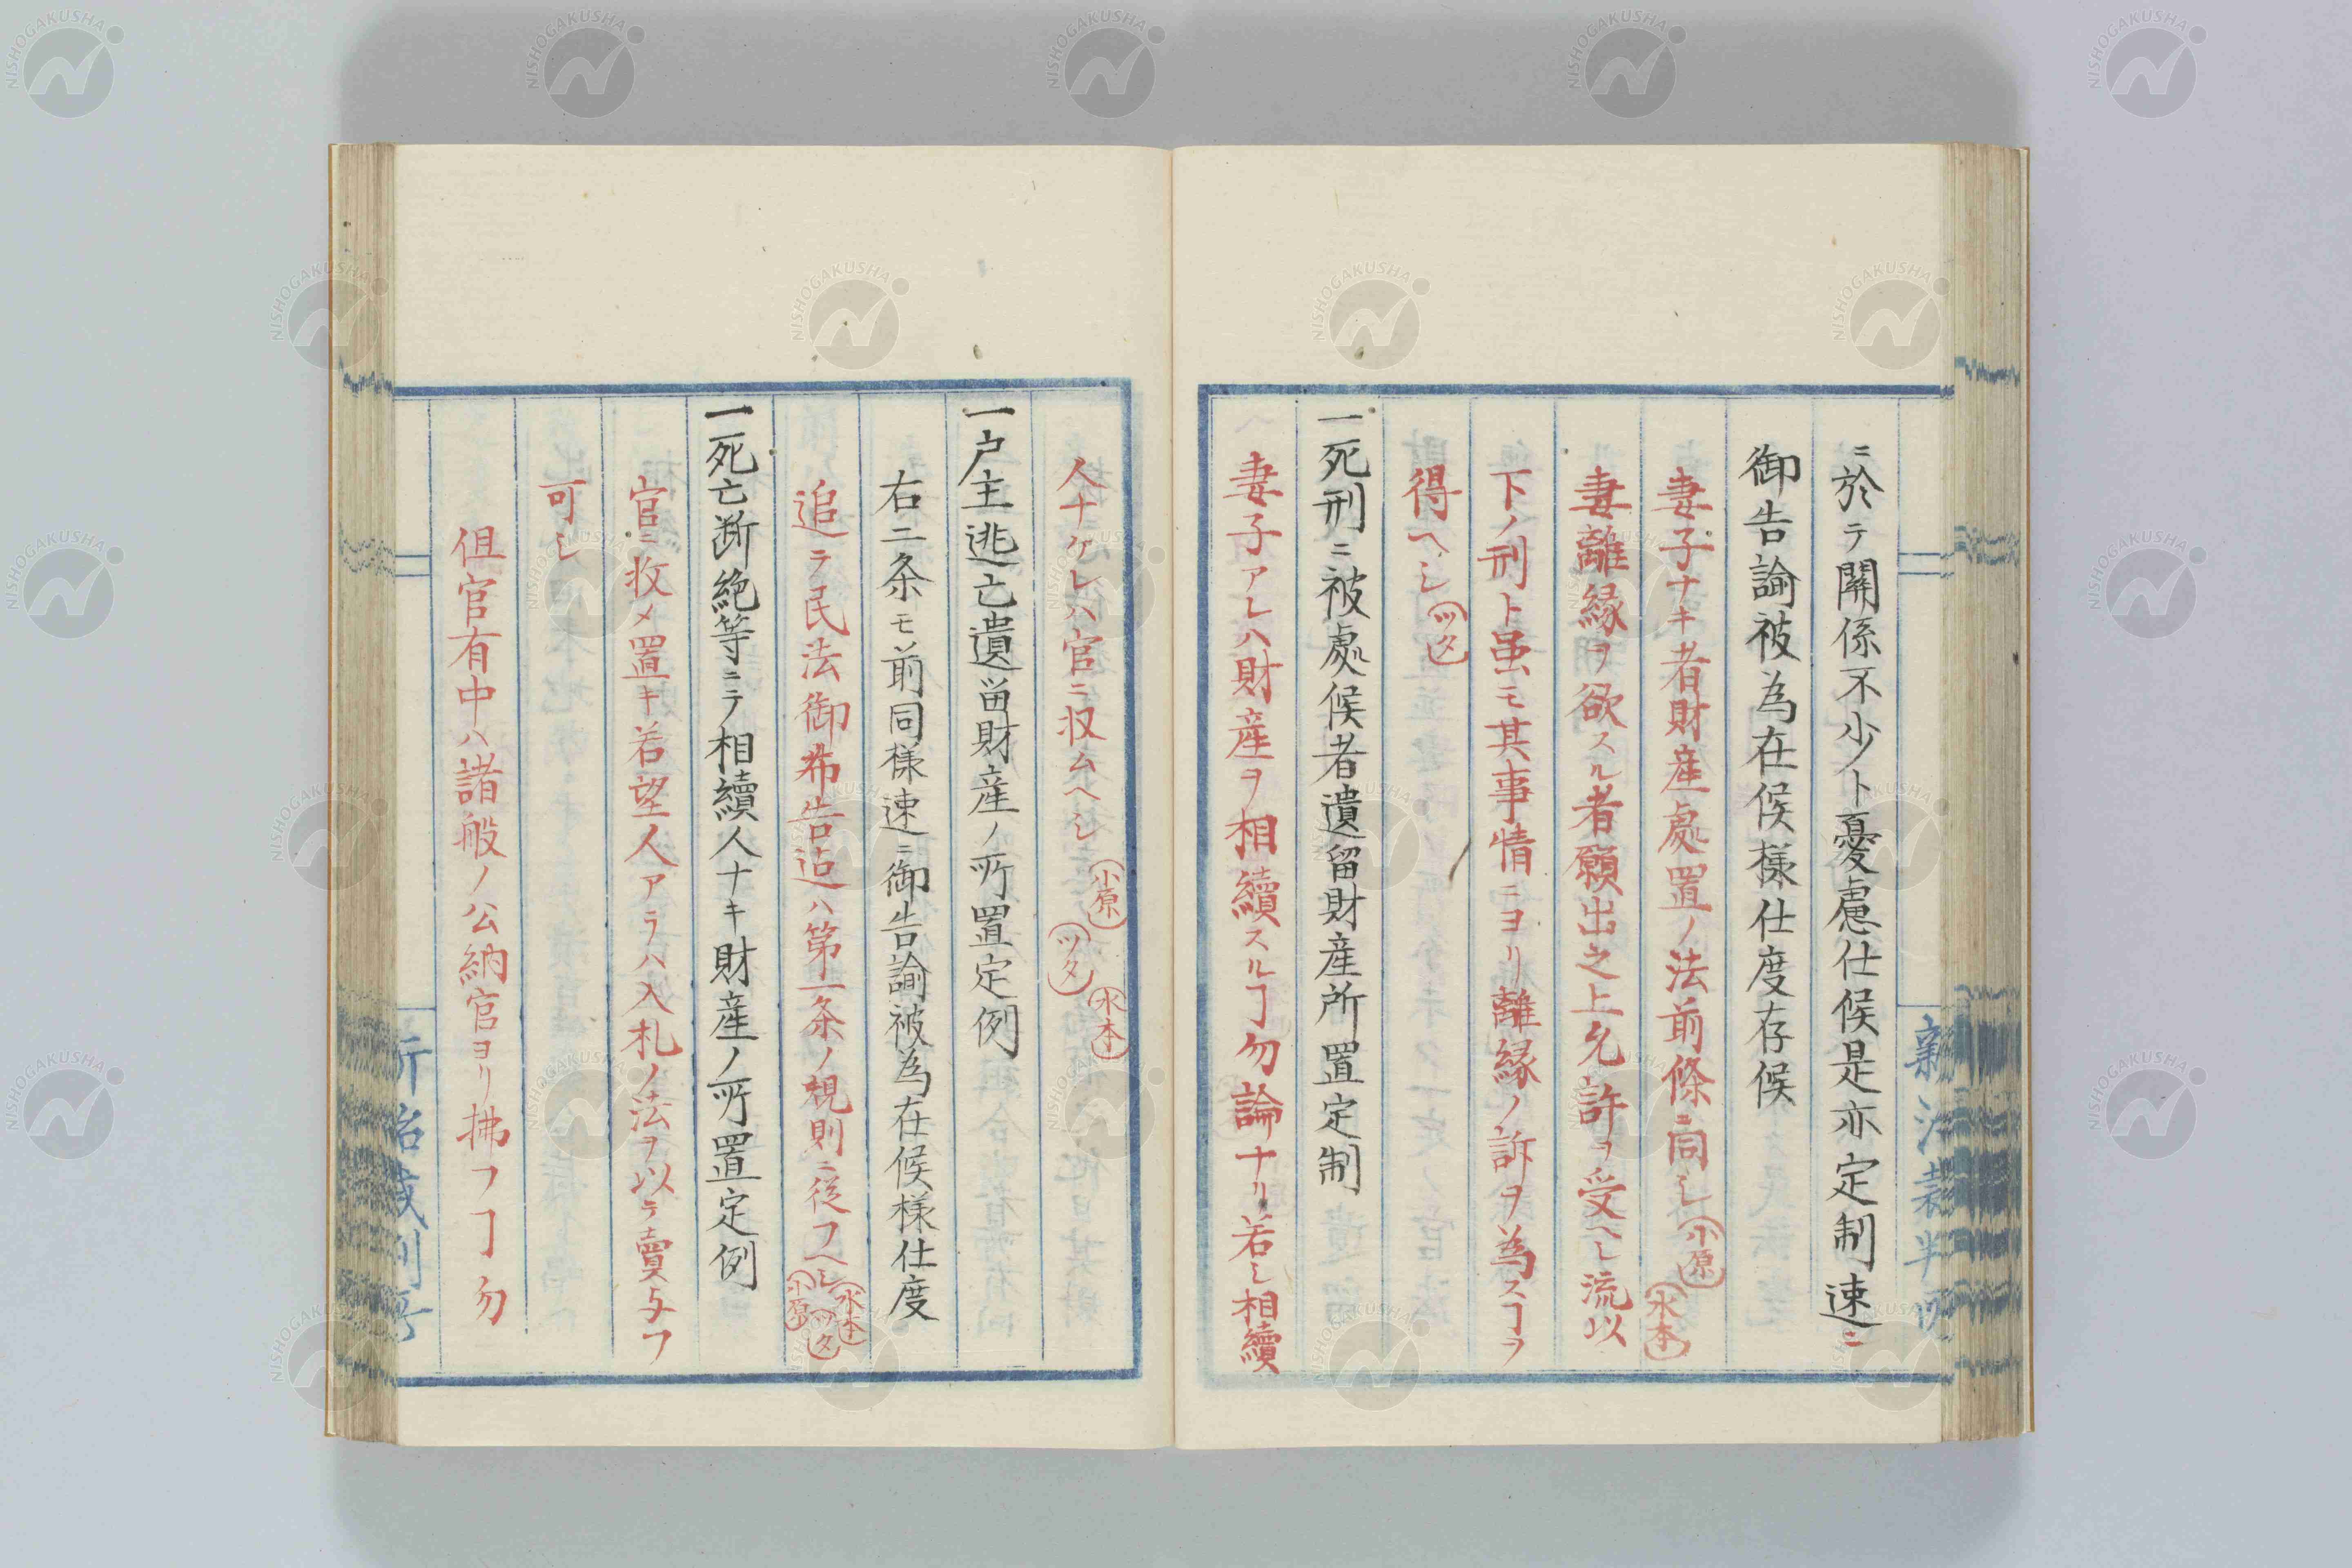 ニ於テ關係不少ト憂慮仕候是亦定制速ニ
御告諭被為在候樣仕度存候
妻子ナキ者財産處置ノ法前條ニ同シ(小原)(水本)
妻離縁ヲ欲スル者願出之上允許ヲ受ヘシ流以
下ノ刑ト虽モ其事情ニヨリ離縁ノ訴ヲ為スヿヲ
得ヘシ(ツタ)
一死刑ニ被處候者遺留財産所置定制
妻子アレハ財産ヲ相續スルヿ勿論ナリ若シ相續
人ナケレハ官ニ収ムヘシ(小原)(ツタ)(水本)
一戸主逃亡遺留財産ノ所置定例
右二条モ前同様速ニ御告諭被為在候様仕度
追テ民法御布告迠ハ第一条ノ規則ニ從フヘシ(水本)(ツタ)(小原)
一死亡断絶等ニテ相續人ナキ財産ノ所置定例
官ニ收メ置キ若望人アラハ入札ノ法ヲ以テ賣与フ
可シ
但官有中ハ諸般ノ公納官ヨリ拂フヿ勿
新治裁判所
NISHOGAKUSHA